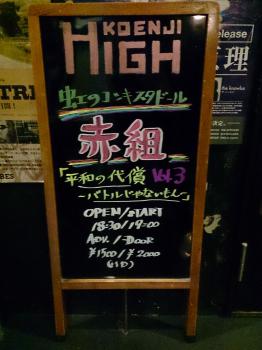 KOENJI
HIGH
虹のコンキスタドール
赤組
「平和の代償 Vol.3
〜バトルじゃないもん〜」
OPEN/START
18:30/19:00
ADV. / DOOR
¥1500/¥2000
(1D)
elease
理
the knowlus